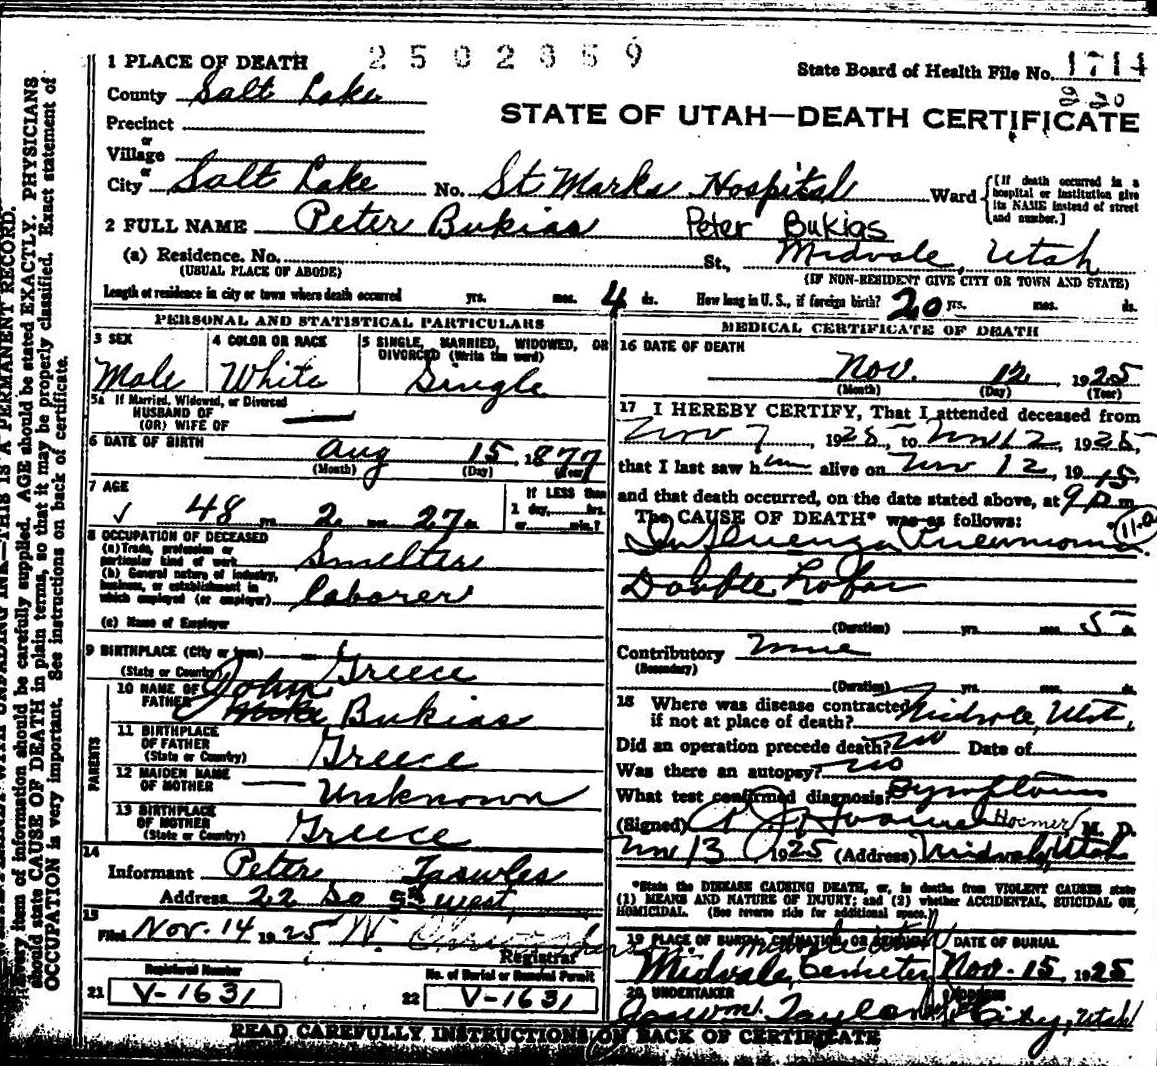 2502359
1 PLACE OF DEATH
State Board of Health File No. 1714
County Salt Lake
220
STATE OF UTAH—DEATH CERTIFICATE
Precinct
or
Village
or
City Salt Lake No. St Marks Hospital Ward
[If death occurred in a hospital or institution give its NAME instead of street and number.]
2 FULL NAME Peter Bukias Peter Bukias
(a) Residence. No. St., Midvale, Utah
(USUAL PLACE OF ABODE) (IF NON-RESIDENT GIVE CITY OR TOWN AND STATE)
Length of residence in city or town where death occurred yrs. mos. 4 ds. How long in U. S., if foreign birth? 20 yrs. mos. ds.
PERSONAL AND STATISTICAL PARTICULARS
3 SEX
Male
4 COLOR OR RACE
White
5 SINGLE, MARRIED, WIDOWED, OR
DIVORCED (Write the word)
Single
5a If Married, Widowed, or Divorced
HUSBAND OF
(OR) WIFE OF
6 DATE OF BIRTH
Aug 15, 1877
(Month) (Day) (Year)
7 AGE
48 yrs. 2 mos. 27 ds.
If LESS than
1 day, hrs.
or min.?
8 OCCUPATION OF DECEASED
(a) Trade, profession or
particular kind of work Smelter
(b) General nature of industry,
business, or establishment in
which employed (or employer) laborer
(c) Name of Employer
9 BIRTHPLACE (City or town)
(State or Country) Greece
PARENTS
10 NAME OF
FATHER John Bukias
11 BIRTHPLACE
OF FATHER
(State or Country) Greece
12 MAIDEN NAME
OF MOTHER Unknown
13 BIRTHPLACE
OF MOTHER
(State or Country) Greece
14
Informant Peter
Address 22 So 5th west,
15
Filed Nov. 14 1925 W.
Registrar
Registered Number
21 V-1631
No. of Burial or Removal Permit
22 V-1631
MEDICAL CERTIFICATE OF DEATH
16 DATE OF DEATH
Nov. 12, 1925
(Month) (Day) (Year)
17 I HEREBY CERTIFY, That I attended deceased from
Nov 7, 1925, to Nov 12, 1925,
that I last saw him alive on Nov 12, 1915,
and that death occurred, on the date stated above, at 9 p m
The CAUSE OF DEATH* was as follows:
11-a
Influenza Pneumonia
Double Lobar
(Duration) yrs. mos. 5 ds.
Contributory None
(Secondary)
(Duration) yrs. mos. ds.
18 Where was disease contracted
if not at place of death? Midvale, Utah,
Did an operation precede death? No Date of
Was there an autopsy? No
What test confirmed diagnosis? Symptoms
(Signed) Hoemer, M. D.
Nov 13, 1925 (Address) Midvale, Utah
*State the DISEASE CAUSING DEATH, or, in deaths from VIOLENT CAUSES state
(1) MEANS AND NATURE OF INJURY; and (2) whether ACCIDENTAL, SUICIDAL OR
HOMICIDAL. (See reverse side for additional space.)
19 PLACE OF BURIAL, CREMATION, OR REMOVAL
Midvale Utah
Midvale, Cemetery
DATE OF BURIAL
Nov. 15, 1925
20 UNDERTAKER
ADDRESS
Taylor City, Utah
READ CAREFULLY INSTRUCTIONS ON BACK OF CERTIFICATE
should state CAUSE OF DEATH in plain terms, so that it may be properly classified. Exact statement of
OCCUPATION is very important. See instructions on back of certificate.